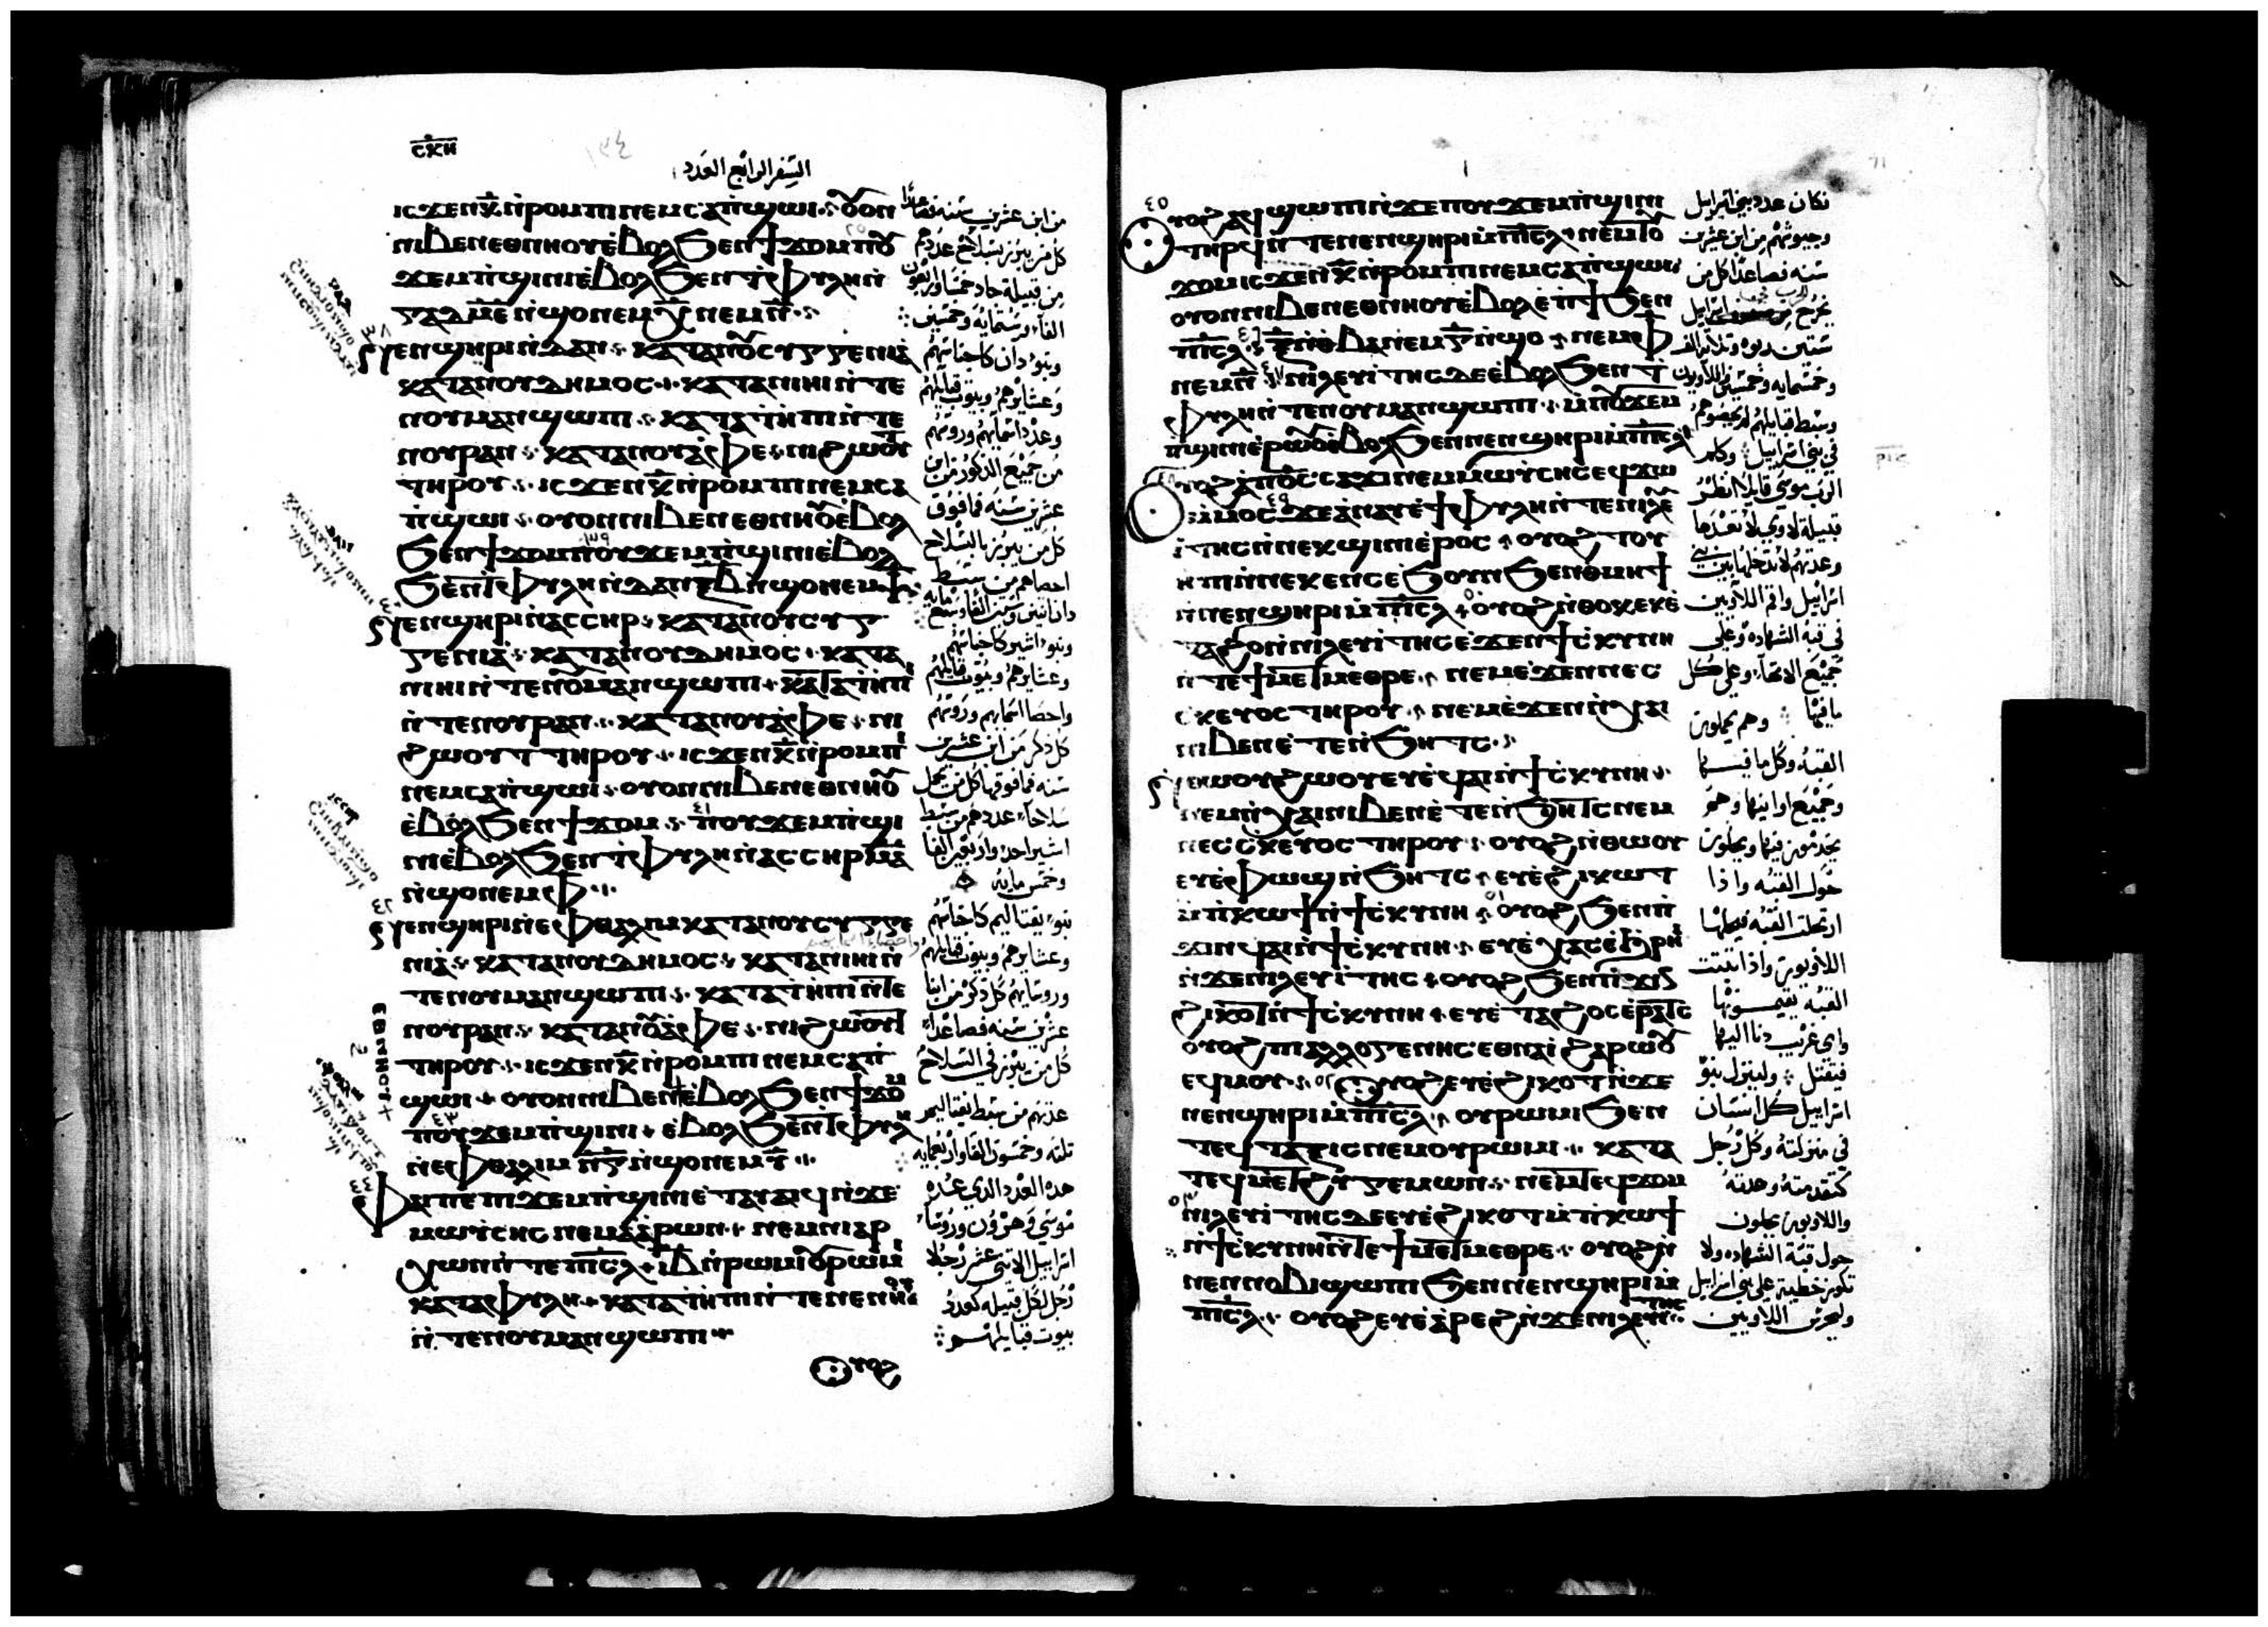 ⲥⲕⲏ
السفر الرابع العدد
ⲓⲥϫⲉⲛⲕ̅ⲛ̀ⲣⲟⲙⲡⲓⲛⲉⲙⲥⲁⲡ̀ϣⲱⲓ ⲟⲩⲟⲛ
ⲛⲓⲃⲉⲛⲉⲑⲛⲏⲟⲩⲉ̀ⲃⲟⲗϧⲉⲛϯϫⲟⲙⲡⲟⲩ
ϫⲉⲙⲡ̀ϣⲓⲛⲓⲉ̀ⲃⲟⲗϧⲉⲛϯⲫⲩⲗⲏⲛ̀
ⲅⲁⲇⲙ̅ⲉ̅ⲛ̀ϣⲟⲛⲉⲙⲭ̅ⲛⲉⲙⲛ̅
ϧⲉⲛⲛⲉⲛϣⲏⲣⲓⲛ̀ⲇⲁⲛ ⲕⲁⲧⲁⲛⲟⲩⲥⲩⲅⲅⲉⲛⲓⲁ
ⲕⲁⲧⲁⲛⲟⲩⲇⲏⲙⲟⲥ ⲕⲁⲧⲁⲛⲓⲏⲓⲛ̀ⲧⲉ
ⲛⲟⲩⲙⲁⲛϣⲱⲡⲓ ⲕⲁⲧⲁⲧ̀ⲏⲡⲓⲛ̀ⲧⲉ
ⲛⲟⲩⲣⲁⲛ ⲕⲁⲧⲁⲛⲟⲩⲁ̀ⲫⲉ ⲛⲓϩⲱⲟⲩⲧ
ⲧⲏⲣⲟⲩ ⲓⲥϫⲉⲛⲕ̅ⲛ̀ⲣⲟⲙⲡⲓⲛⲉⲙⲥⲁ
ⲡ̀ϣⲱⲓ ⲟⲩⲟⲛⲛⲓⲃⲉⲛⲉⲑⲛⲏⲟⲩⲉ̀ⲃⲟⲗ
ϧⲉⲛϯϫⲟⲙⲡⲟⲩϫⲉⲙⲡ̀ϣⲓⲛⲓⲉ̀ⲃⲟⲗ
ϧⲉⲛϯⲫⲩⲗⲏⲛ̀ⲇⲁⲛⲝ̅ⲃ̅ⲛ̀ϣⲟⲛⲉⲙⲯ̅
ⲕⲁⲧⲁⲛⲟⲩⲥⲩⲅ
ⲅⲉⲛⲓⲁ ⲕⲁⲧⲁⲛⲟⲩⲇⲏⲙⲟⲥ ⲕⲁⲧⲁ
ⲛⲓⲏⲓⲛ̀ⲧⲉⲛⲟⲩⲙⲁⲛϣⲱⲡⲓ ⲕⲁⲧⲁⲧ̀ⲏⲡⲓ
ⲛ̀ⲧⲉⲛⲟⲩⲣⲁⲛ ⲕⲁⲧⲁⲛⲟⲩⲁ̀ⲫⲉ ⲛⲓ
ϩⲱⲟⲩⲧⲧⲏⲣⲟⲩ ⲓⲥϫⲉⲛⲕ̅ⲛ̀ⲣⲟⲙⲡⲓ
ⲛⲉⲙⲥⲁⲡ̀ϣⲱⲓ ⲟⲩⲟⲛⲛⲓⲃⲉⲛⲉⲑⲛⲏⲟⲩ
ⲉ̀ⲃⲟⲗϧⲉⲛϯϫⲟⲙ ⲡⲟⲩϫⲉⲙⲡ̀ϣⲓ
ⲛⲓⲉ̀ⲃⲟⲗϧⲉⲛϯⲫⲩⲗⲏⲛ̀ⲁⲥⲥⲏⲣⲙ̅ⲁ̅
ⲛ̀ϣⲟⲛⲉⲙⲫ̅
ⲛⲓⲁ ⲕⲁⲧⲁⲛⲟⲩⲇⲏⲙⲟⲥ ⲕⲁⲧⲁⲛⲓⲏⲓⲛ̀
ⲧⲉⲛⲟⲩⲙⲁⲛϣⲱⲡⲓ ⲕⲁⲧⲁⲧ̀ⲏⲡⲓⲛ̀ⲧⲉ
ⲛⲟⲩⲣⲁⲛ ⲕⲁⲧⲁⲛⲟⲩⲁ̀ⲫⲉ ⲛⲓϩⲱⲟⲩⲧ
ⲧⲏⲣⲟⲩ ⲓⲥϫⲉⲛⲕ̅ⲛ̀ⲣⲟⲙⲡⲓⲛⲉⲙⲥⲁⲡ̀
ϣⲱⲓ ⲟⲩⲟⲛⲛⲓⲃⲉⲛⲉ̀ⲃⲟⲗϧⲉⲛϯϫⲟⲙ
ⲡⲟⲩϫⲉⲙⲡ̀ϣⲓⲛⲓ ⲉ̀ⲃⲟⲗϧⲉⲛϯⲫⲩⲗⲏ
ⲛ̀ⲉⲫⲑⲁⲗⲓⲙ ⲛ̅ⲅ̅ⲛ̀ϣⲟⲛⲉⲙⲩ̅
ⲫⲁⲓⲡⲉⲡⲓϫⲉⲙⲡ̀ϣⲓⲛⲓⲉ̀ⲧⲁϥⲁⲓϥⲛ̀ϫⲉ
ⲙⲱⲩⲥⲏⲥⲛⲉⲙⲁ̀ⲁ̀ⲣⲱⲛ ⲛⲉⲙⲛⲓⲁⲣ
ⲭⲱⲛⲛ̀ⲧⲉⲡⲓⲥ̅ⲗ̅ ⲓ̅ⲃ̅ⲛ̀ⲣⲱⲙⲓⲟⲩⲣⲱⲙⲓ
ⲕⲁⲧⲁⲫⲩⲗⲏ ⲕⲁⲧⲁⲧ̀ⲏⲡⲓⲛ̀ⲧⲉⲛⲉⲛⲏⲓ
ⲛ̀ⲧⲉⲛⲟⲩⲙⲁⲛϣⲱⲡⲓ
ⲟⲩⲟϩ
من ابن عشرين سنه فصاعدا
كل من يبرز بسلاح عددهم
من قبيلة جاد خمسا واربعون
الفا وستمايه وخمسين
وبنو دان كاجناسهم
وعشايرهم وبيوت قبايلهم
وعدد اسمايهم وروسهم
من جميع الذكور من ابن
عشرين سنه فما فوق
كل من يبرز بالسلاح
احصاهم من سبط
وبنو اشير كاجناسهم
وعشايرهم وبيوت قبايلهم
واحصا اسمايهم وروسهم
كل ذكر من ابن عشرين
سلاحا عددهم من سبط
اشير احد واربعين الفا
وخمس مايه
وعشايرهم وبيوت قبايلهم
عشرين سنه فصاعدا
كل من يبرز في السلاح
عددهم من سبط نفتاليم
ثلثه وخمسون الفا واربعمايه
هذه العدد الذي عده
موسى وهرون وروسا
اسراييل الاثنى عشر رجلا
رجل لكل قبيله كعدد
بيوت قبايلهم
ⲟⲩⲟϩⲁϥϣⲱⲡⲓⲛ̀ϫⲉⲡⲟⲩϫⲉⲙⲡ̀ϣⲓⲛⲓ
ⲧⲏⲣϥⲛ̀ⲧⲉⲛⲉⲛϣⲏⲣⲓⲙ̀ⲡⲓⲥ̅ⲗ̅ ⲛⲉⲙⲧⲟⲩ
ϫⲟⲙⲓⲥϫⲉⲛⲕ̅ⲛ̀ⲣⲟⲙⲡⲓⲛⲉⲙⲥⲁⲡ̀ϣⲱⲓ
ⲟⲩⲟⲛⲛⲓⲃⲉⲛⲉⲑⲛⲏⲟⲩⲉ̀ⲃⲟⲗⲉ̀ⲡ̀ϯϧⲉⲛ
ⲡⲓⲥ̅ⲗ̅ ⲝ̅ⲛ̀ⲑ̀ⲃⲁⲛⲉⲙⲅ̅ⲛ̀ϣⲟ ⲛⲉⲙⲫ̅
ⲛⲉⲙⲛ̅ ⲛⲓⲗⲉⲩⲓ̀ⲧⲏⲥⲇⲉⲉ̀ⲃⲟⲗϧⲉⲛϯ
ⲫⲩⲗⲏⲛ̀ⲧⲉⲛⲟⲩⲙⲁⲛϣⲱⲡⲓ ⲙ̀ⲡⲟⲩϫⲉⲙ
ⲡ̀ϣⲓⲛⲓⲉ̀ⲣⲱⲟⲩⲉ̀ⲃⲟⲗϧⲉⲛⲛⲉⲛϣⲏⲣⲓⲙ̀ⲡⲓⲥ̅ⲗ̅
ⲟⲩⲟϩⲁ̀ⲡⲟ̅ⲥ̅ⲥⲁϫⲓⲛⲉⲙⲙⲱⲩⲥⲏⲥⲉϥϫⲱ
ⲙ̀ⲙⲟⲥ ϫⲉⲁ̀ⲛⲁⲩⲉ̀ϯⲫⲩⲗⲏⲛ̀ⲧⲉⲛⲓⲗⲉⲩ
ⲓ̀ⲧⲏⲥⲛ̀ⲛⲉⲕϣⲓⲛⲓⲉ̀ⲣⲟⲥ ⲟⲩⲟϩⲧⲟⲩ
ⲏⲡⲓⲛ̀ⲛⲉⲕⲉⲛⲥⲉ̀ϧⲟⲩⲛϧⲉⲛⲑⲙⲏϯ
ⲛ̀ⲛⲉⲛϣⲏⲣⲓⲙ̀ⲡⲓⲥ̅ⲗ̅ ⲟⲩⲟϩⲛ̀ⲑⲟⲕⲉⲕⲉ̀
ⲧⲁϩⲟⲛ̀ⲛⲓⲗⲉⲩⲓ̀ⲧⲏⲥⲉ̀ϫⲉⲛϯⲥ̀ⲕⲩⲛⲏ
ⲛ̀ⲧⲉϯⲙⲉⲧⲙⲉⲑⲣⲉ ⲛⲉⲙⲉ̀ϫⲉⲛⲛⲉⲥ
ⲥⲕⲉⲩⲟⲥⲧⲏⲣⲟⲩ ⲛⲉⲙⲉ̀ϫⲉⲛⲛ̀ⲭⲁⲓ
ⲛⲓⲃⲉⲛⲉ̀ⲧⲉⲛ̀ϧⲏⲧⲥ
ⲛ̀ⲑⲱⲟⲩϩⲱⲟⲩⲉⲩⲉ̀ϥⲁⲓⲛ̀ϯⲥ̀ⲕⲩⲛⲏ
ⲛⲉⲙⲛ̀ⲭⲁⲓⲛⲓⲃⲉⲛⲉ̀ⲧⲉⲛ̀ϧⲏⲧⲥⲛⲉⲙ
ⲛⲉⲥⲥⲕⲉⲩⲟⲥⲧⲏⲣⲟⲩ ⲟⲩⲟϩⲛ̀ⲑⲱⲟⲩ
ⲉⲩⲉ̀ⲫⲱϣⲛ̀ϧⲏⲧⲥ ⲉⲩⲉ̀ϩⲓⲕⲱⲧ
ⲙ̀ⲡ̀ⲕⲱϯⲛ̀ϯⲥ̀ⲕⲩⲛⲏ ⲟⲩⲟϩϧⲉⲛⲡ̀
ϫⲓⲛϥⲁⲓⲛ̀ϯⲥ̀ⲕⲩⲛⲏ ⲉⲩⲉ̀ⲭⲁⲥⲉ̀ϧⲣⲏⲓ
ⲛ̀ϫⲉⲛⲓⲗⲉⲩⲓ̀ⲧⲏⲥ ⲟⲩⲟϩϧⲉⲛⲡ̀ϫⲓⲛ
ϩⲓⲕⲟⲧⲛ̀ϯⲥ̀ⲕⲩⲛⲏ ⲉⲩⲉ̀ⲧⲁϩⲟⲥⲉ̀ⲣⲁⲧⲥ
ⲟⲩⲟϩⲡⲓⲁⲗⲗⲟⲅⲉⲛⲏⲥⲉⲑⲛⲁⲓ̀ϩⲁⲣⲱⲟⲩ
ⲉϥⲙⲟⲩ ⲟⲩⲟϩⲉⲩⲉ̀ϩⲓⲕⲟⲧⲛ̀ϫⲉ
ⲛⲉⲛϣⲏⲣⲓⲙ̀ⲡⲓⲥ̅ⲗ̅ ⲟⲩⲣⲱⲙⲓϧⲉⲛ
ⲧⲉϥⲧⲁⲝⲓⲥⲛⲉⲙⲟⲩⲣⲱⲙⲓ ⲕⲁⲧⲁ
ⲧⲉϥⲙⲉⲧϩⲩⲅⲉⲙⲱⲛ ⲛⲉⲙⲧⲉϥϫⲟⲙ
ⲛⲓⲗⲉⲩⲓ̀ⲧⲏⲥⲇⲉⲉⲩⲉ̀ϩⲓⲕⲟⲧⲙ̀ⲡ̀ⲕⲱϯ
ⲛ̀ϯⲥ̀ⲕⲩⲛⲏⲛ̀ⲧⲉϯⲙⲉⲧⲙⲉⲑⲣⲉ ⲟⲩⲟϩⲛ̀
ⲛⲉⲛⲛⲟⲃⲓϣⲱⲡⲓϧⲉⲛⲛⲉⲛϣⲏⲣⲓⲙ̀
ⲡⲓⲥ̅ⲗ̅ ⲟⲩⲟϩⲉⲩⲉ̀ⲁ̀ⲣⲉϩⲛ̀ϫⲉⲛⲓⲗⲉⲩⲓⲧⲏⲥ
فكان عدد بني اسراييل
وجيوشهم من ابن عشرين
سنه فصاعدا كل من
ستين ربوه وثلاثه الف
وخمسمايه وخمسين واللاويون
وسط قبايلهم لم يحصوهم
في بني اسراييل وكلم
الرب موسى قايلا انظر
قبيلة لاوي لا تعدها
وعدتهم لا تدخلها بين بني
اسراييل واقم اللاويين
في قبة الشهاده وعلى
جميع الاتها وعلى كل
ما فيها وهم يحملون
القبه وكل ما فيها
وجميع اوانيها وهم
يخدمون فيها ويحلون
حول القبه واذا
ارتحلت القبه فيحطها
اللاويون واذا نزلت
القبه يقيمونها
واي غريب دنا اليها
فيقتل ولينزل بنو
اسراييل كل انسان
في منزلته وكل رجل
واللاويون يحلون
حول قبة الشهاده ولا
تكون خطية على بني اسراييل
وليحرس اللاويين